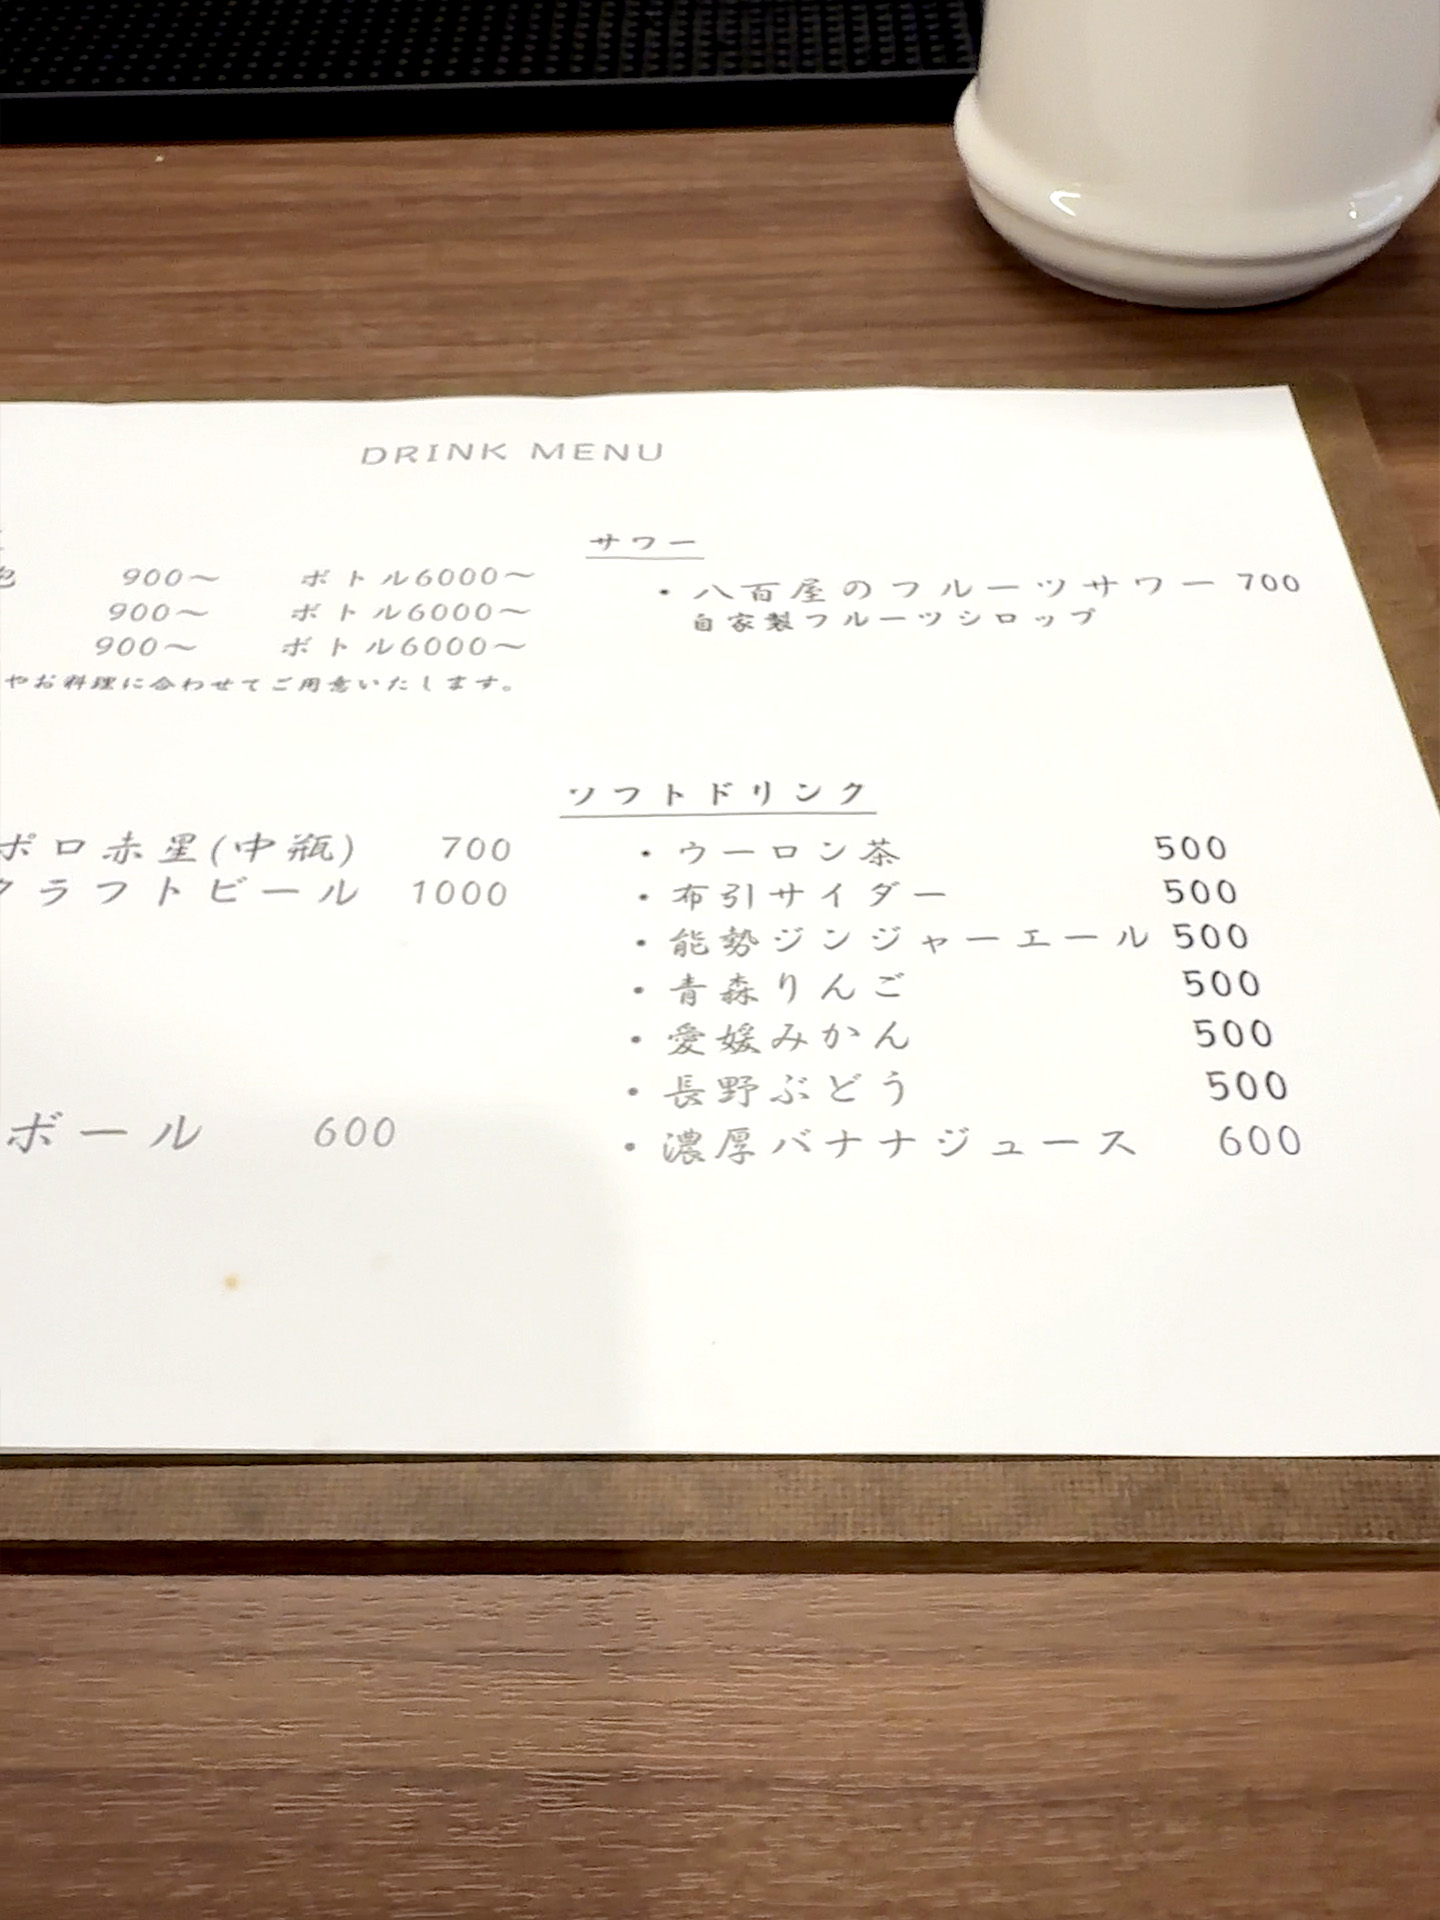 DRINK MENU
900〜 ボトル6000〜
900〜 ボトル6000〜
900〜 ボトル6000〜
やお料理に合わせてご用意いたします。
ポロ赤星(中瓶) 700
クラフトビール 1000
ボール 600
サワー
・八百屋のフルーツサワー 700
自家製フルーツシロップ
ソフトドリンク
・ウーロン茶 500
・布引サイダー 500
・能勢ジンジャーエール 500
・青森りんご 500
・愛媛みかん 500
・長野ぶどう 500
・濃厚バナナジュース 600